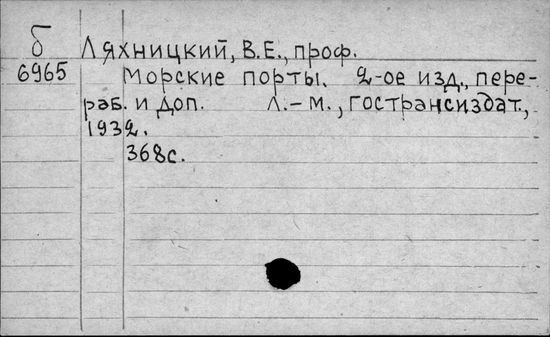 б
6965
Ляхницкий, В.Е., проф.
Морские порты. 2-ое изд., пере-
раб. и доп. Л.-М., Гострансиздат,
1932.
368с.